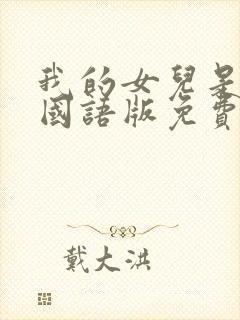 我的女兒是
國語版免費
戴大洪